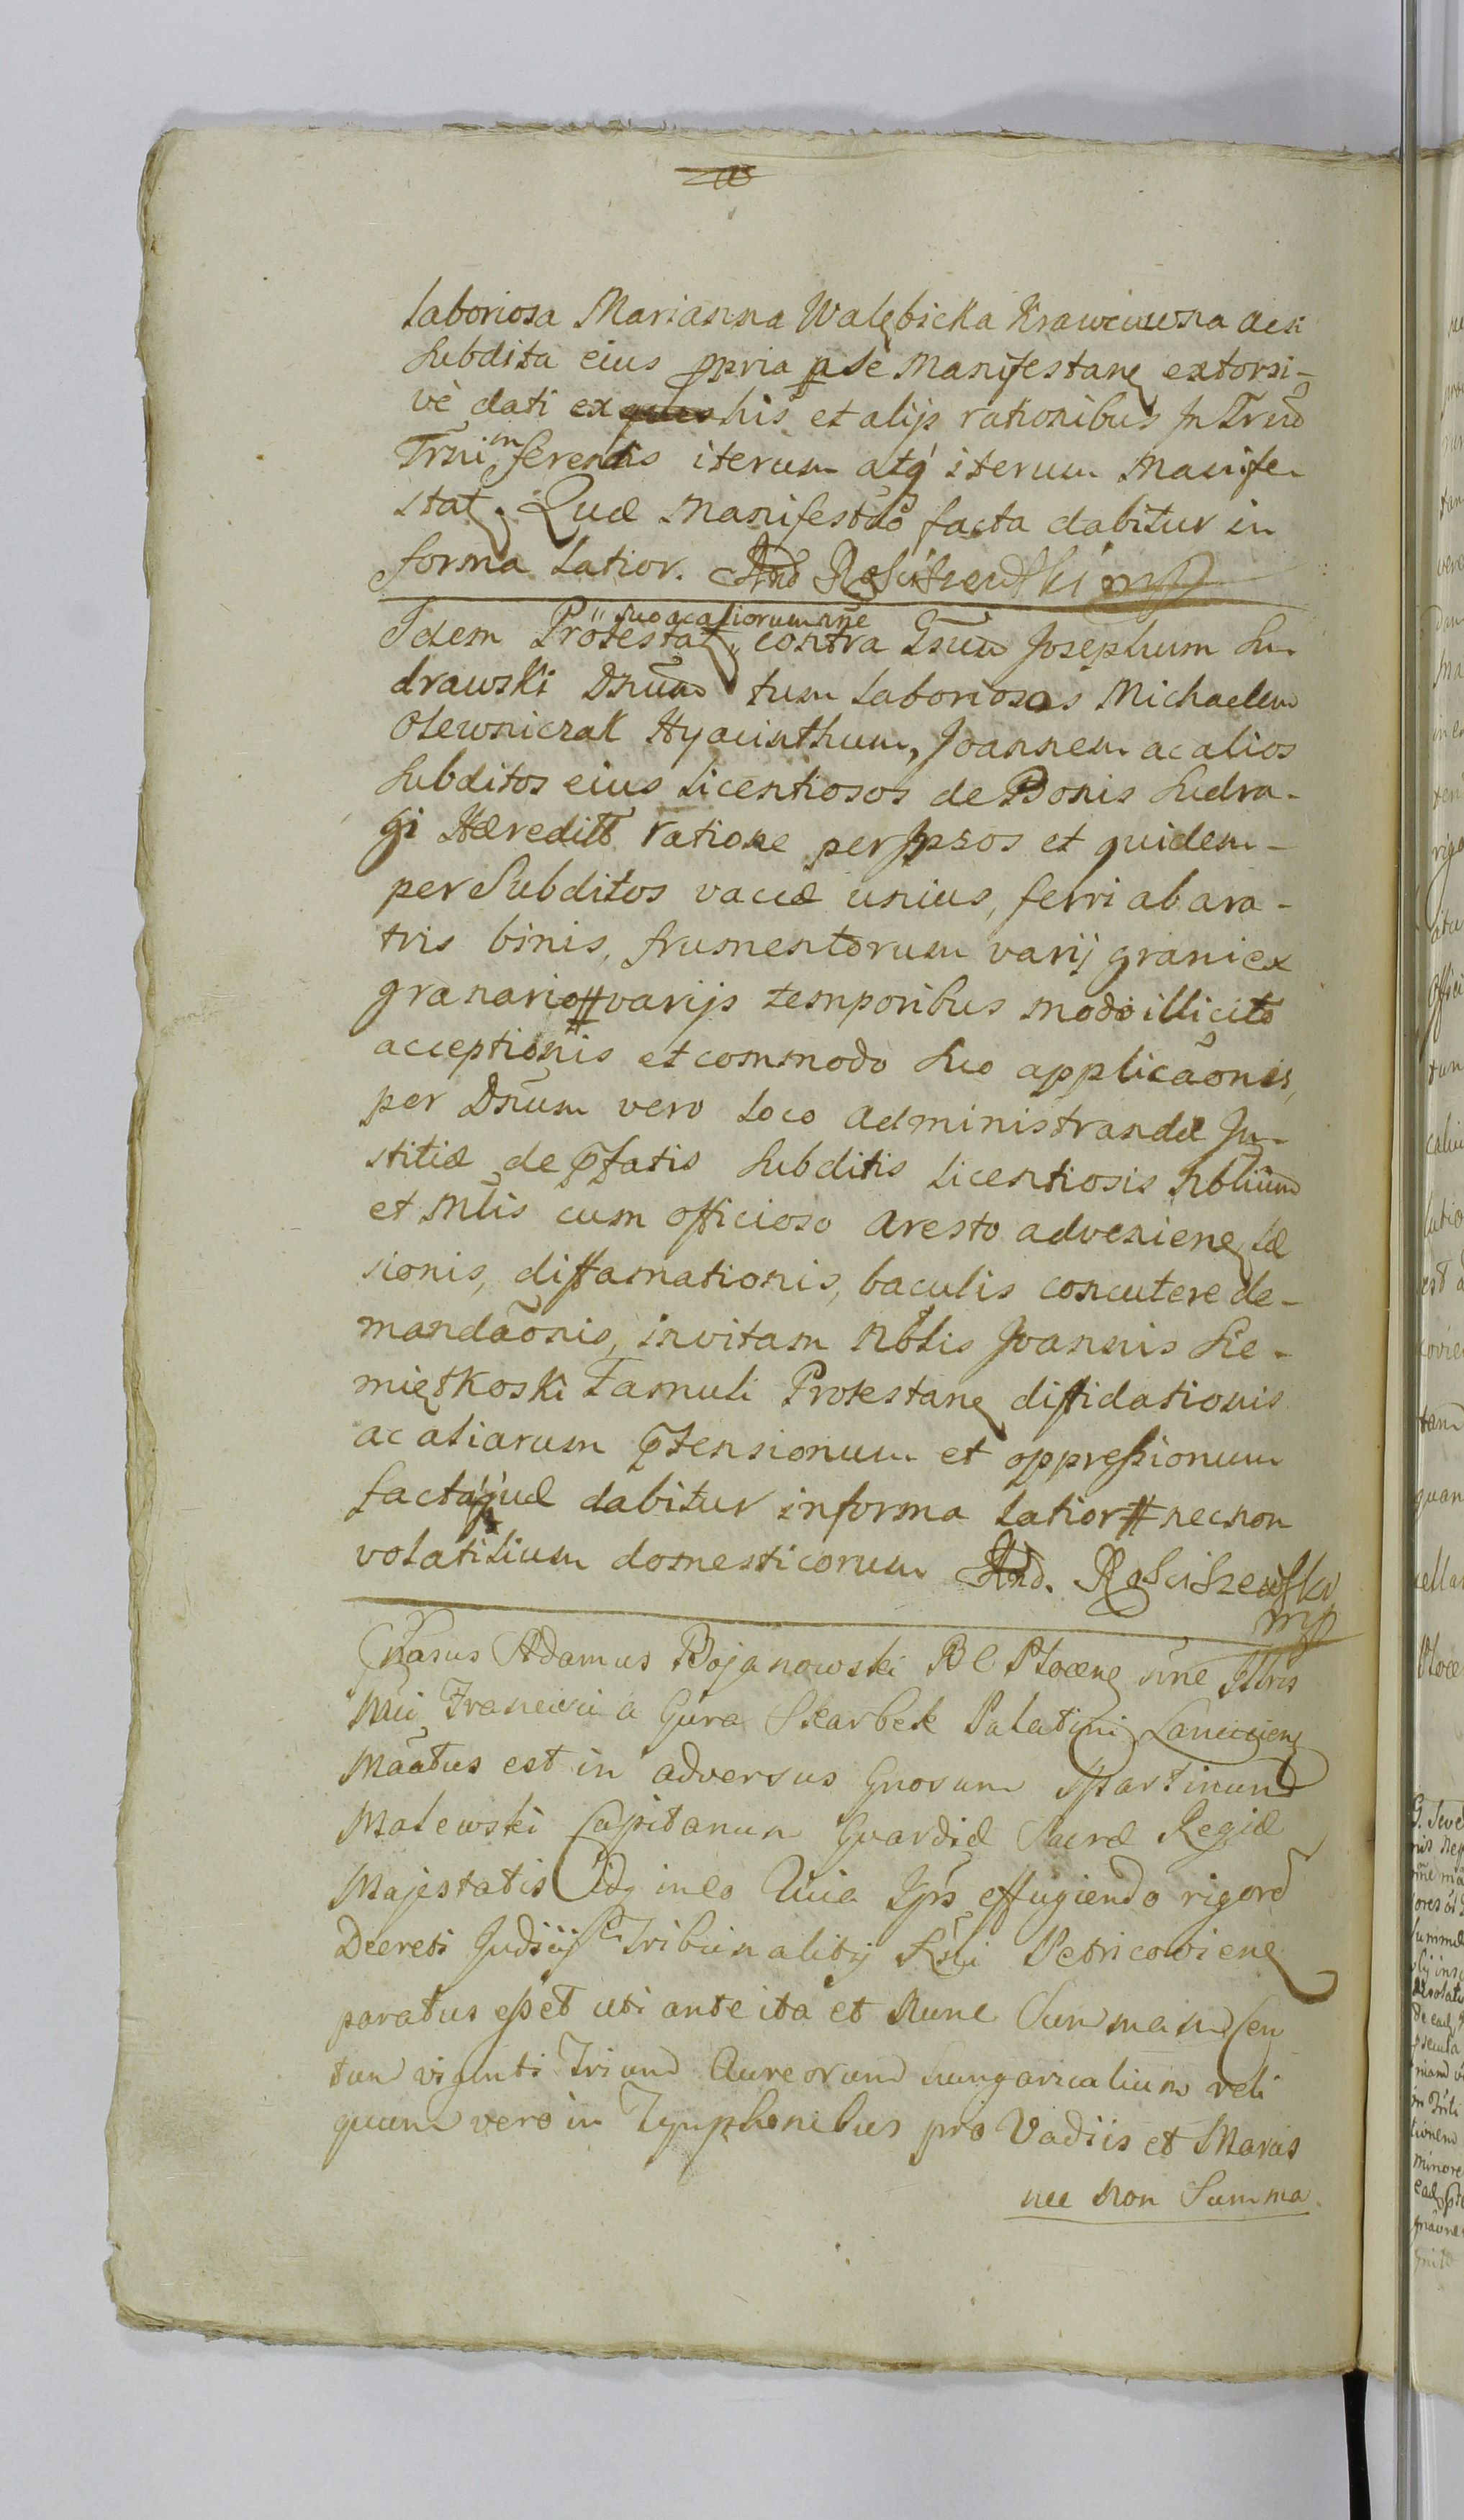 laboriosa Marianna Walębicka Krawcuwna ac si
Subdita eius ppria p se Manifestanę extorsi-
vè dati ex his et alijs rationibus In Trnō
Trni in ferendis iterum atq́ iterum manife-
statę. Quæ manifestāō facta dabitur in
forma latior. And Rościszewski mp
Idem Protestatę " suo ac aliorum nñe
contra Gsum Josephum Su-
drawski Dnūm tum laboriosos Michaelem
Olewniczak Hyacinthum, Joannem ac alios
Subditos eius licentiosos de Bonis Sudra-
gi Hæreditt ratione per Ipsos et quidem-
per Subditos vaccæ unius, ferri ab ara-
tris binis, frumentorum varij grani ex
granario # varijs temporibus modo illicito
acceptionis et commodo suo applicāonis,
per Dnūm vero loco administrandæ Ju-
stitiæ de pfatis Subditis licentiosis Nbliūm
et Mlis cum officioso aresto advenienę læ
sionis, diffamationis, baculis concutere de-
mandāonis, in vitam Nblis Joannis Sie-
miętkoski Famuli Protestanę diffidationis
ac aliarum ptensionum et oppressionum
factaq́ quæ dabitur in forma latior # necnon
volatilium domesticorum And. Rościszewski
mp
Gnasus Adamus Bojanowski B C Plocenę nñe Illris
Mci Francisci a Gura Skarbek Palatini Lancicienę
Māatus est in adversus Gnosum Martinum
Malewski Capitanum Guardiæ Sacræ Regiæ
Majestatis Idę in eo Quia Ips effugiendo rigorē
Decreti Judicij Tribunalitij Rgni Petricovienę
paratus esset uti ante ita et Nunc Summam Cen
tum viginti Trium Aureorum hungaricalium reli
quum vero in Tynphonibus pro Vadiis et Maras
nec non Summa